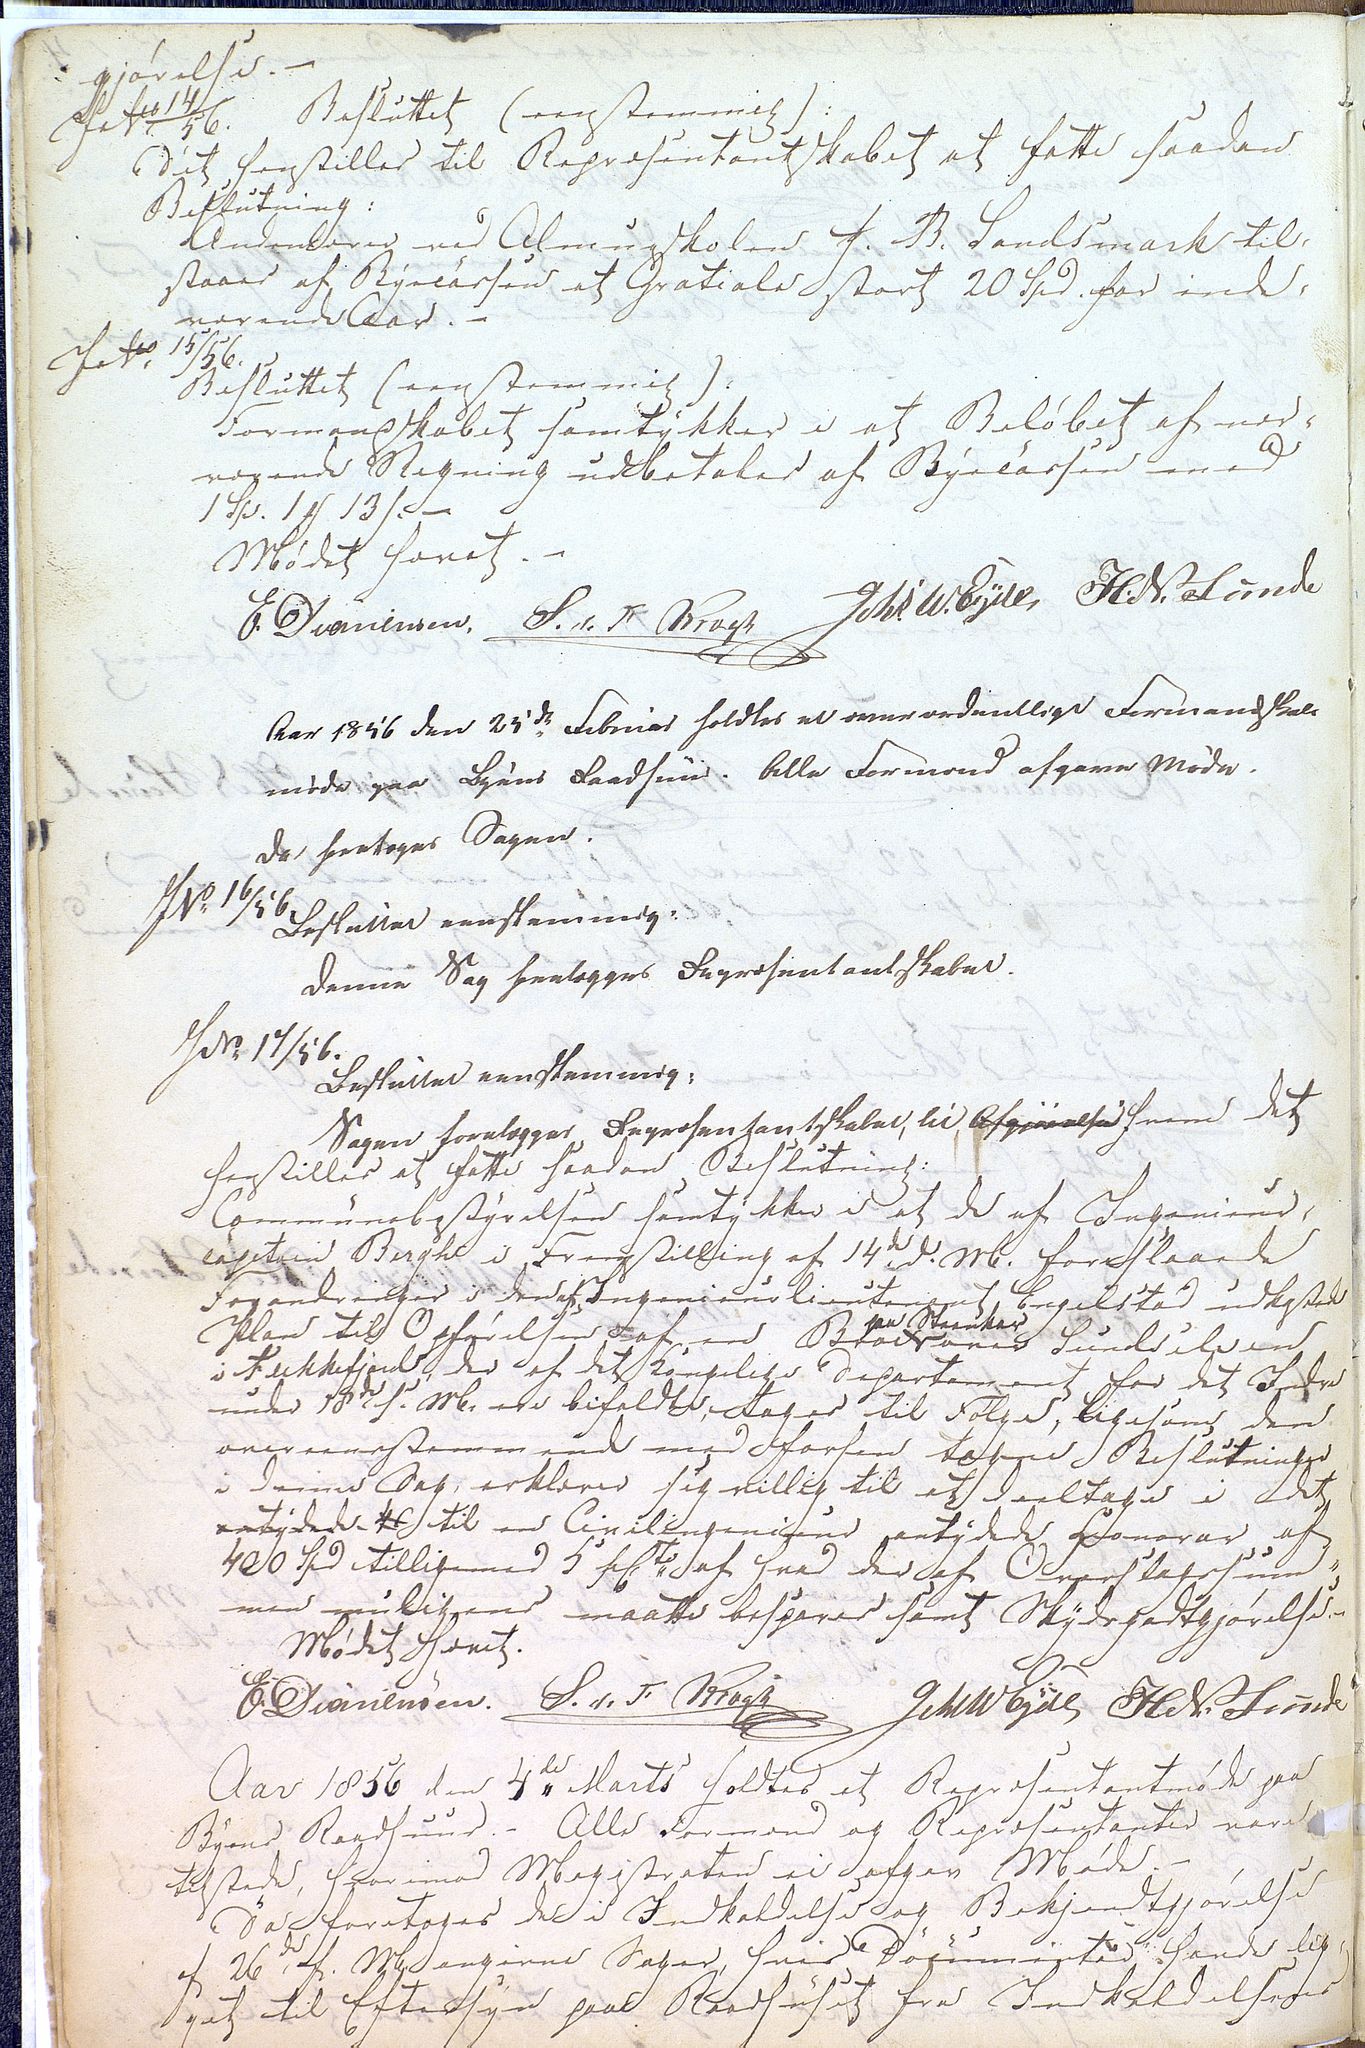 gjörelse. –
J. No. 14/56. Besluttet (eenstemmig):
Det henstilles til Repræsentantskabet at fatte saadan
Beslutning:
Andenlærer ved Almueskolen J. B. Landsmark til-
staaes af Byecassen et Gratiale stort 20 Spd. for inde-
værende Aar. –
J. No. 15/56.
Besluttet (eenstemmig):
Formandskabet samtykker i at Beløbet af nær-
værende Regning udbetales af Byecassen med
1 Sp. 1 ƒ 13 s. –
Mödet hævet. –
E. Danielsen. S. v. F. Krogh Joh. W. Eyde, H. N. Sunde
Aar 1856 den 25de Februar holdtes et overordentligt Formandskabs-
møde paa Byens Raadhuus. Alle Formænd afgave Møde.
Da foretoges Sagen.
J No. 16/56.
Besluttet eenstemmig:
Denne Sag forelægges Repræsentantskabet.
J No. 17/56.
Besluttet eenstemmig:
Sagen forelægges Repræsentantskabet, til Afgjörelse hvem det
henstilles at fatte saadan Beslutning:
Communebestyrelsen samtykker i at de af Ingenieur-
capitain Berghe i Fremstilling af 14de d. M. foreslaaede
Forandringer i den af Ingenieurlieutenant Engelstad udkastede
Plan til Opförelsen af en Bro paa Steenkar over Lundselven
i Flekkefjord, der af det Kongelige Departement for det Indre
under 18de s. M. ere bifaldte, tages til Fölge, ligesom den
overeensstemmende med forhen tagne Beslutninger
i denne Sag, erklærer sig villig til at deeltage i det
antydede til en Civilingenieur antydede Honorar af
400 Spd tilligemed 5 pCt. af hvad der af Overslagssum-
men muligens maatte bespares samt Skydsgodtgjörelse. –
Mödet hævet.
E. Danielsen. S. v. F. Krogh Joh W Eyde, H. N. Sunde
Aar 1856 den 4de Marts holdtes et Repræsentantmöde paa
Byens Raadhuus. – Alle Formænd og Repræsentanter vare
tilstede, hvorimod Magistraten ei afgav Möde. –
Da foretoges de i Indkaldelse og Bekjendtgjörelse
af 26de f. M. angivne Sager, hvis Documenter havde lig-
get til Eftersyn paa Raadhuset fra Indkaldelsens